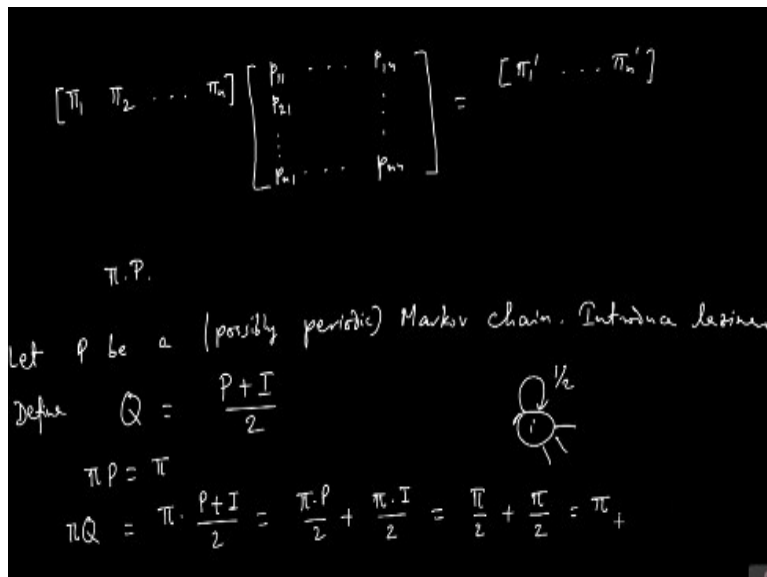 [π₁ π₂ ... πₙ] [p₁₁ ... p₁ₙ p₂₁ ⋮ ⋮ pₙ₁ ... pₙₙ] = [π₁' ... πₙ']
π.P.
Let P be a (possibly periodic) Markov chain. Introduce laziness
Define Q = (P+I)/2
1/2
i
πP = π
πQ = π · (P+I)/2 = π·P/2 + π·I/2 = π/2 + π/2 = π +